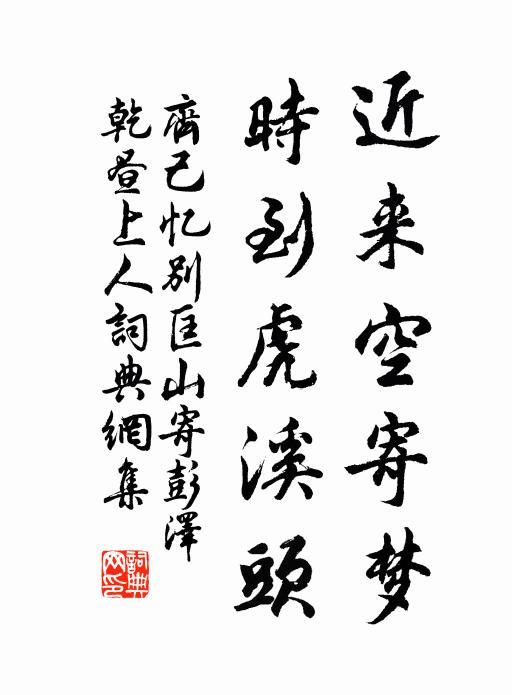 近来空寄梦
時到虎溪頭
齊己忆別匡山寄彭澤
乾昼上人詞典網集
詞典
网印